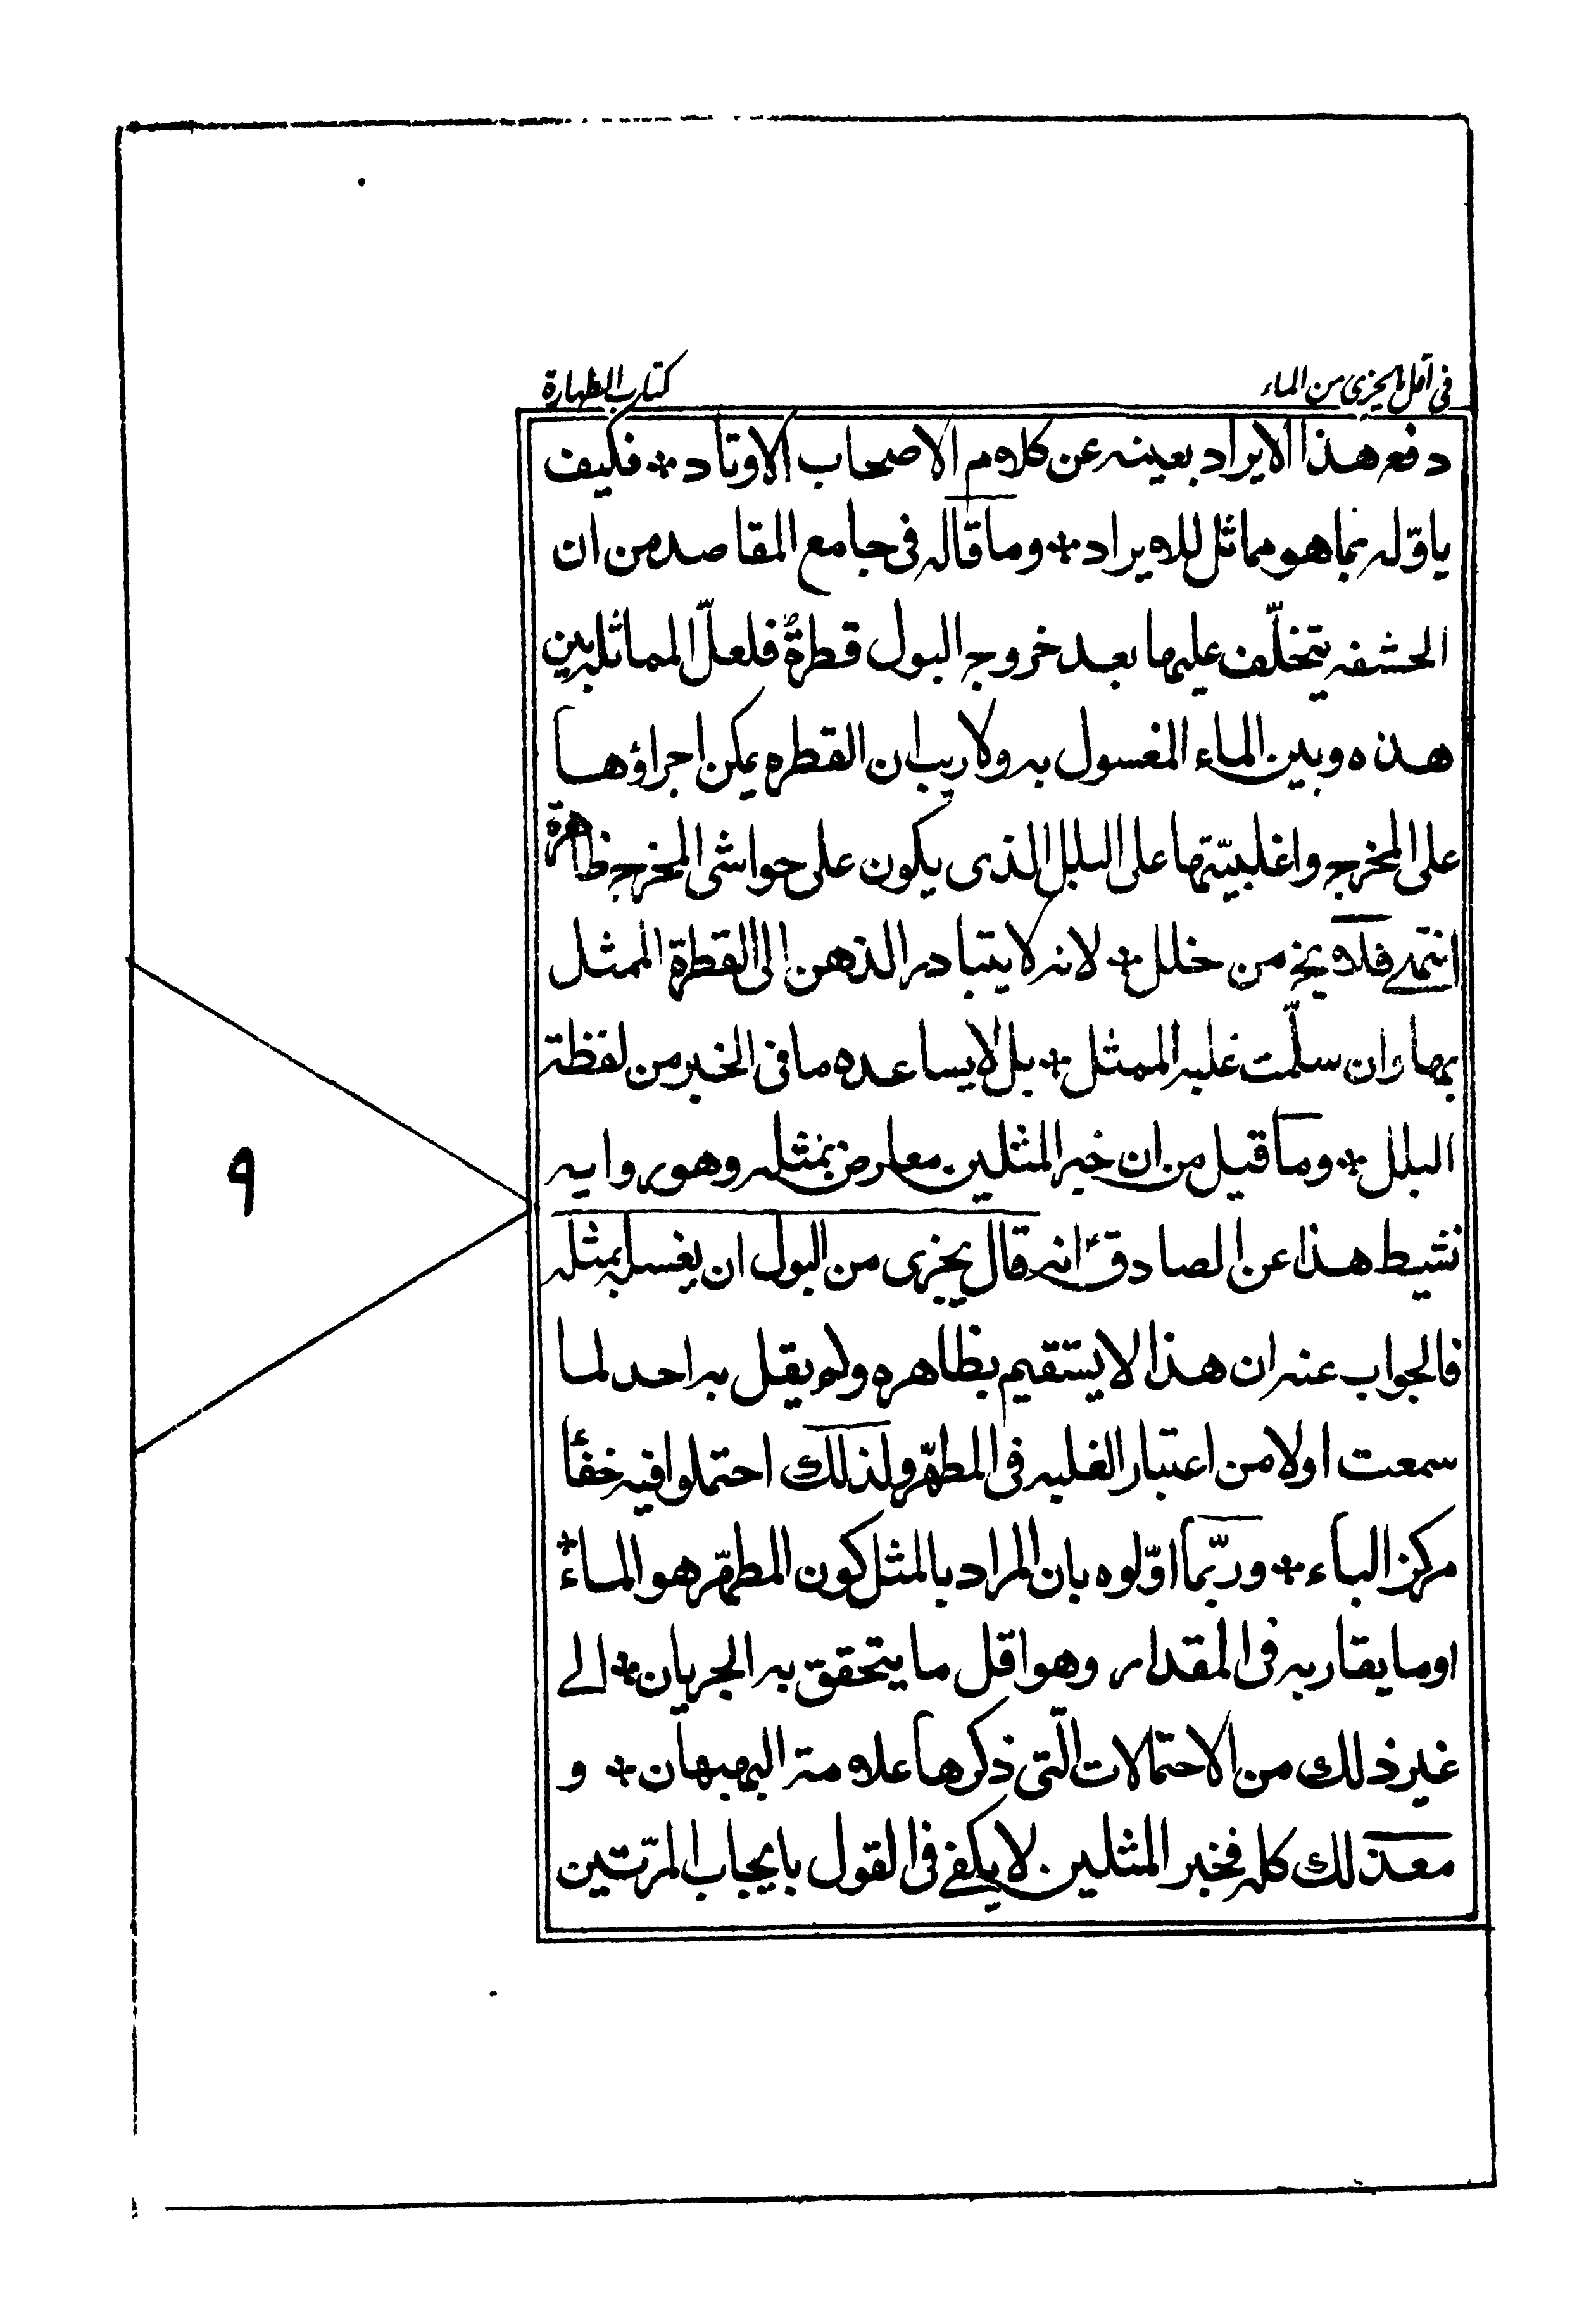 في اقل ما يجزي من الماء كتاب الطهارة
دفع هذا الايراد بعينه عن كلام الاصحاب الاوتاد * فكيف
ياوّله بما هو مماثل للايراد * وما قاله في جامع المقاصد من ان
الحشفه يتخلّف عليها بعد خروج البول قطرةٌ فلعلّ المماثله بين
هذه وبين الماء المغسول به ولا ريب ان القطره يمكن اجراؤها
على المخرج واغلبيّتها على البلل الذى يكون على حواشى المخرج ظاهرة
انتهى فلا يخ من خلل * لانه لا يتبادر الذهن الى القطرة الممثل
بها وان سلّمت غلبه الممثل * بل لا يساعده ما فى الخبر من لفظة
البلل * وما قيل من ان خبر المثلين معارض بمثله وهو روايه
نشيط هذا عن الصادق ع انه قال يجزى من البول ان يغسله بمثله
فالجواب عنه ان هذا لا يستقيم بظاهره ولم يقل به احد لما
سمعت اولا من اعتبار الغلبه فى المطهّر ولذلك احتملوا فيه خفأ
مركز الباء * وربّما اوّلوه بان المراد بالمثل كون المطهّر هو الماء *
او ما يقاربه فى المقدار وهو اقل ما يتحقق به الجريان * الى
غير ذلك من الاحتمالات الّتى ذكرها علامة البهبهان * و
مع ذلك كله فخبر المثلين لا يكفى فى القول بايجاب المرّتين
٩